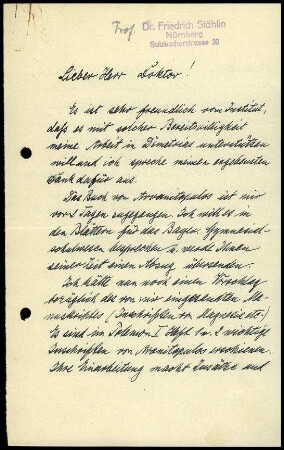 Prof. Dr. Friedrich Stählin
Nürnberg
Sulzbacherstrasse 39
Lieber Herr Doktor!
Es ist sehr freundlich vom Institut,
dass es mit solcher Bereitwilligkeit
meine Arbeit in Dimetrias unterstützen
will und ich spreche meinen ergebensten
Dank dafür aus.
Das Buch von Arvanitopulos ist mir
vor 8 Tagen zugegangen. Ich will es in
den Blättern für das Bayer. Gymnasial-
schulwesen besprechen u. werde Ihnen
seiner Zeit einen Abzug übersenden.
Ich hätte nun noch einen Vorschlag
bezüglich des von mir eingesandten Ma-
nuskriptes (Inschriften von Magnesia etc.)
Es sind im Polemon I Heft 1 u. 2 wichtige
Inschriften von Arvanitopulos erschienen.
Ihre Einarbeitung macht Zusätze und